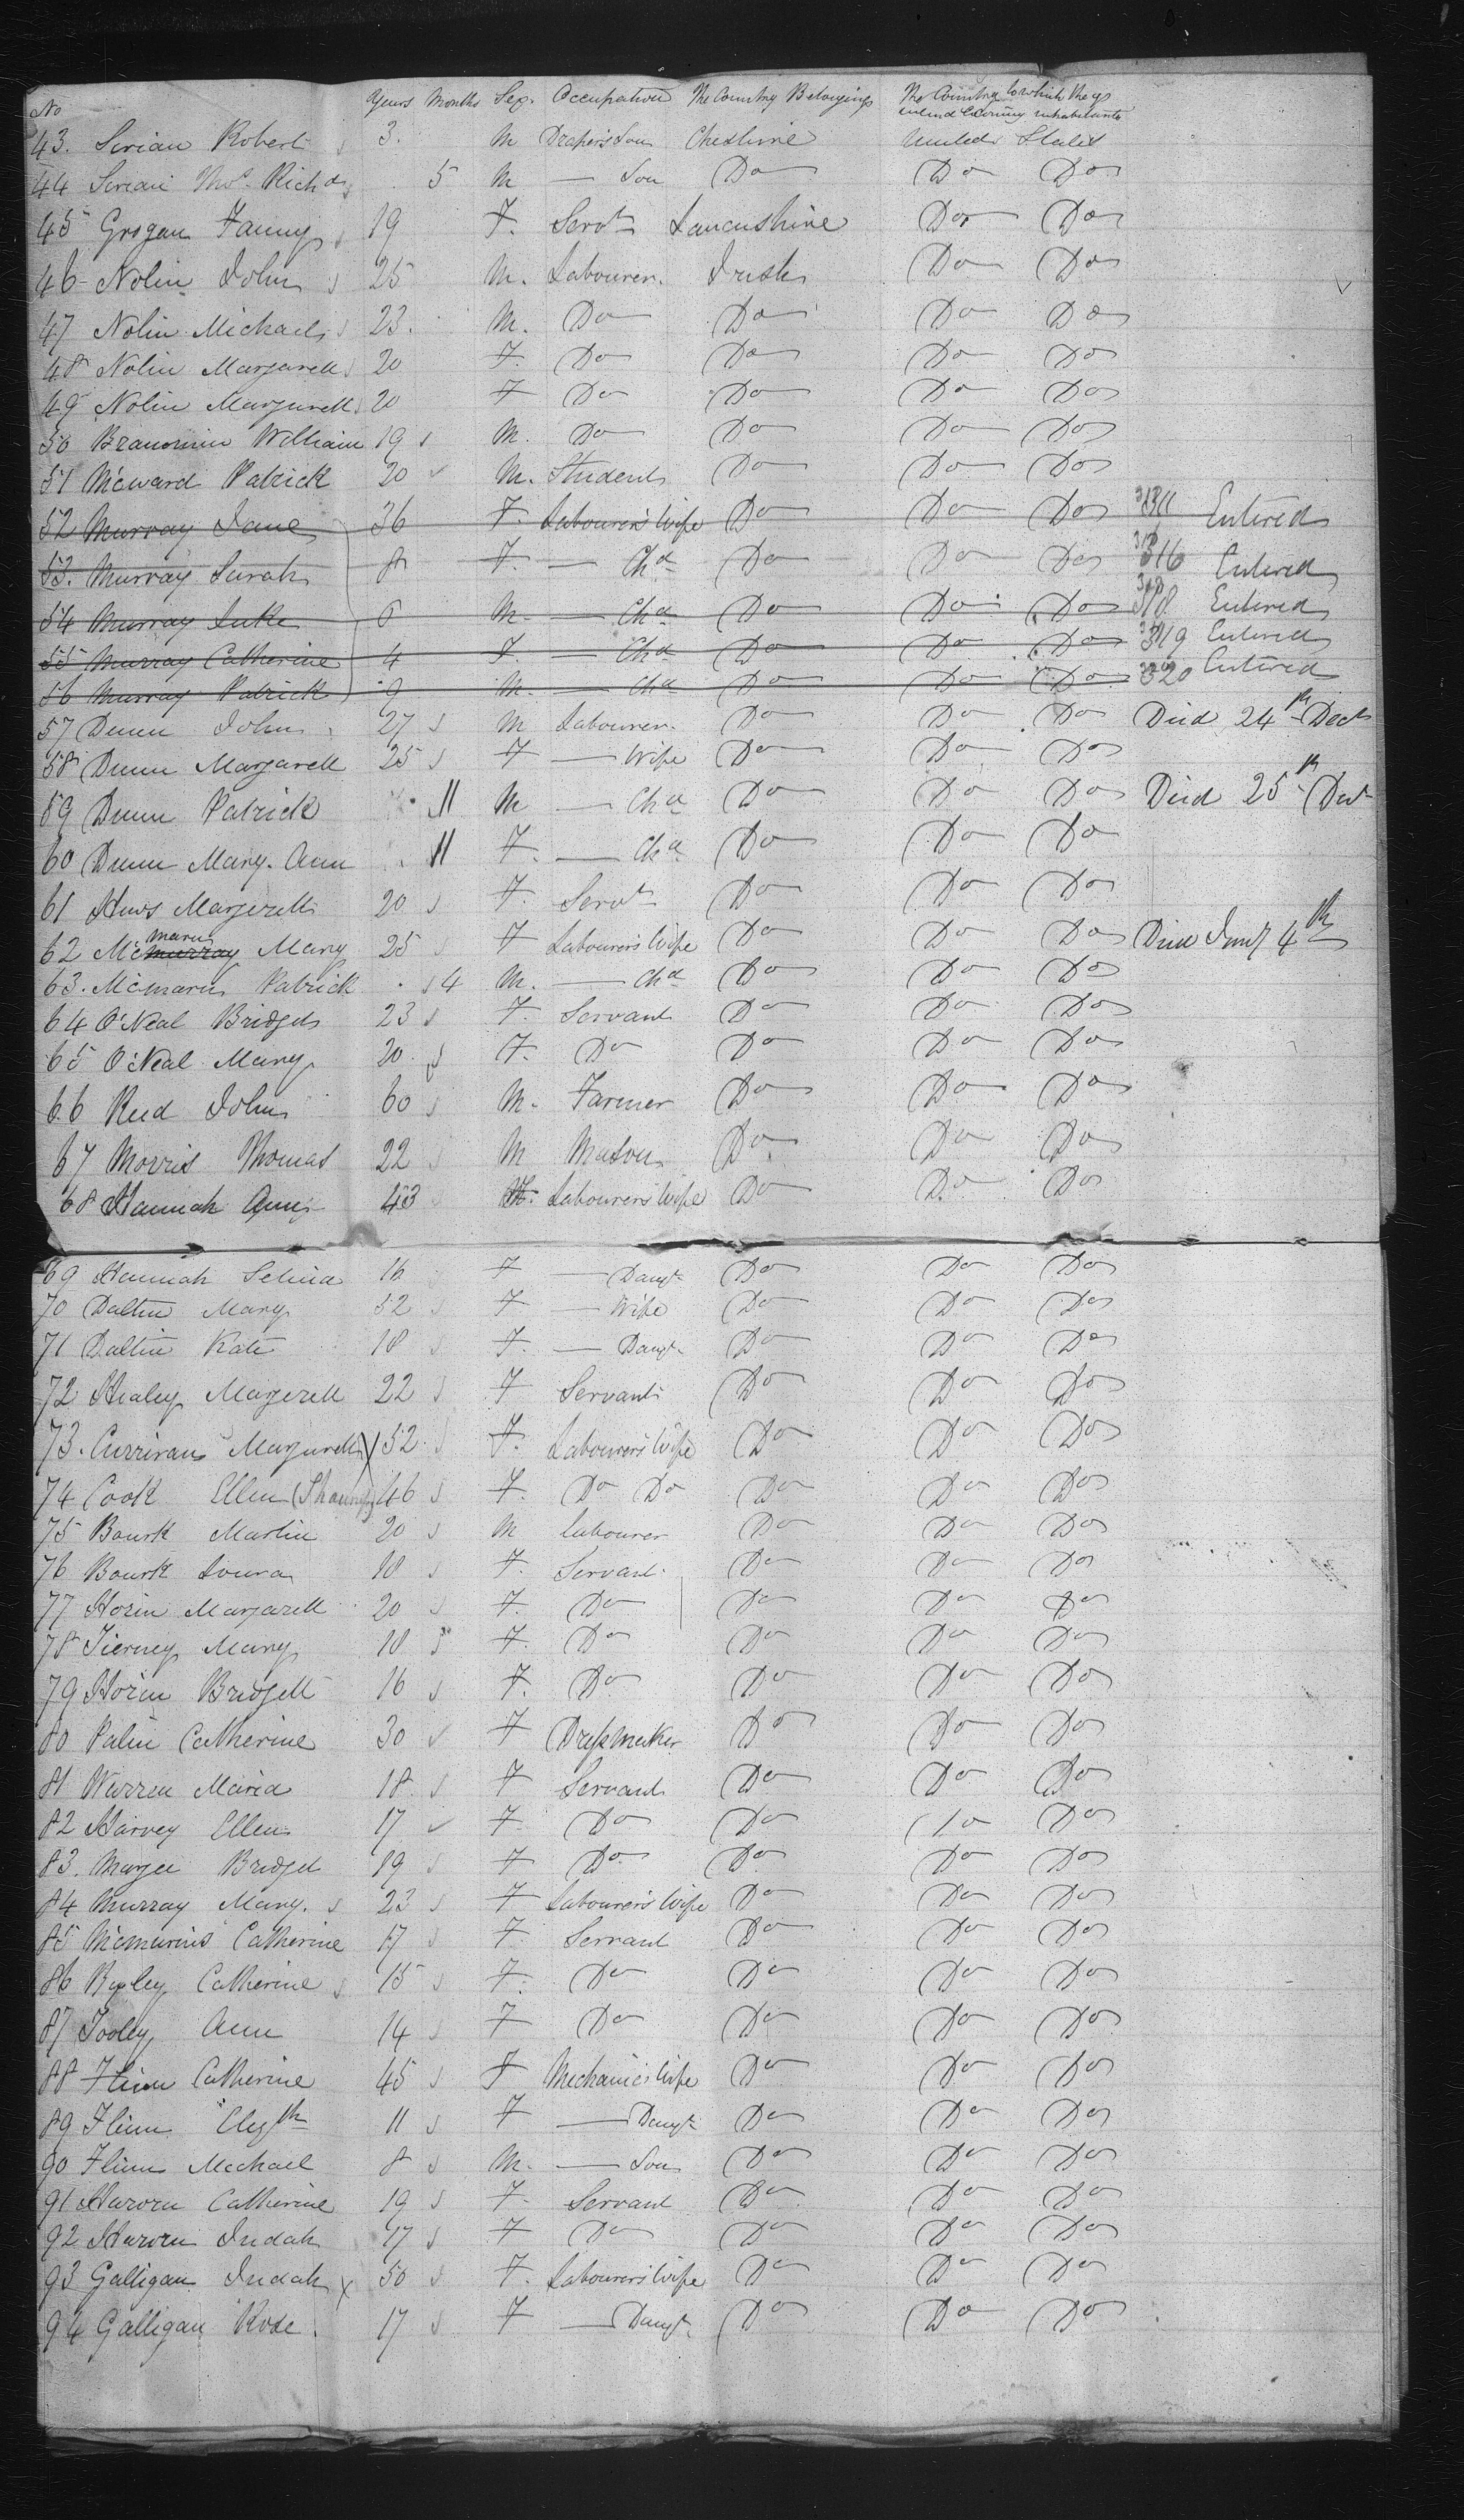 No Years Months Sex. Occupation The Country Belonging The Country to which they intend becoming inhabitants
43. Serian Robert 3. M Draper's Son Cheshire United States
44 Serian Thos. Richd 5 M — Son Do Do Do
45 Grogan Fanny 19 F. Servt Lancashire Do Do
46 Nolin John 25 M. Labourer. Irish Do Do
47 Nolin Michael 23. M. Do Do Do Do
48 Nolin Margarett 20 F. Do Do Do Do
49 Nolin Margarett 20 F Do Do Do Do
50 William 19 M. Do Do Do Do
51 McWard Patrick 20 M. Student Do Do Do
52 Murray Jane 36 F. Labourer's Wife Do Do Do Entered
53. Murray Sarah 8 F. — Chd Do Do Do 316 Entered
54 Murray Luke 6 M — Chd Do Do Do 318 Entered
55 Murray Catherine 4 F. — Chd Do Do Do 319 Entered
56 Murray Patrick 9 M. — Chd Do Do Do 320 Entered
57 Dunn John 27 M Labourer. Do Do Do Died 24th Dect
58 Dunn Margarett 25 F — Wife Do Do Do
59 Dunn Patrick 11 M — Chd Do Do Do Died 25th Dect
60 Dunn Mary Ann 11 F. — Chd Do Do Do
61 Hews Margerett 20 F. Servt Do Do Do
62 Mc murray manus Mary 25 F Labourer's Wife Do Do Do Died Jany 4th
63. McManus Patrick 4 M. — Chd Do Do Do
64 O'Neal Bridget 23 F. Servant Do Do Do
65 O'Neal Mary 20 F. Do Do Do Do
66 Reed John 60 M. Farmer Do Do Do
67 Morris Thomas 22 M Mason Do Do Do
68 Hannah Ann 43 Labourer's Wife Do Do Do
69 Hannah Selina 16 F — Daugt Do Do Do
70 Daltin Mary 52 F — Wife Do Do Do
71 Daltin Kate 18 F. — Daugt Do Do Do
72 Healey Margerett 22 F Servant Do Do Do
73. Curriran Margarett 52 F. Labourer's Wife Do Do Do
74 Cook Ellen 46 F. Do Do Do Do Do
75 Bourk Martin 20 M labourer Do Do Do
76 Bourk Loura 18 F. Servant Do Do Do
77 Horin Margarett 20 F. Do Do Do Do
78 Tierney Mary 18 F. Do Do Do Do
79 Horin Bridgett 16 F. Do Do Do Do
80 Palin Catherine 30 F Dressmaker Do Do Do
81 Warren Maria 18 F Servant Do Do Do
82 Harvey Ellen 17 F Do Do Do Do
83. Magee Bridget 19 F Do Do Do Do
84 Murray Mary. 23 F Labourer's Wife Do Do Do
85 McManus Catherine 17 F Servant Do Do Do
86 Catherine 15 F. Do Do Do Do
87 Tooley Ann 14 F Do Do Do Do
88 Flinn Catherine 45 F Mechanic's Wife Do Do Do
89 Flinn Elizth 11 F — Daugt Do Do Do
90 Flinn Michael 8 M. — Son Do Do Do
91 Harorn Catherine 19 F. Servant Do Do Do
92 Harorn Judah 17 F Do Do Do Do
93 Galligan Judah 50 F. Labourer's Wife Do Do Do
94 Galligan Rose 17 F — Daugt Do Do Do